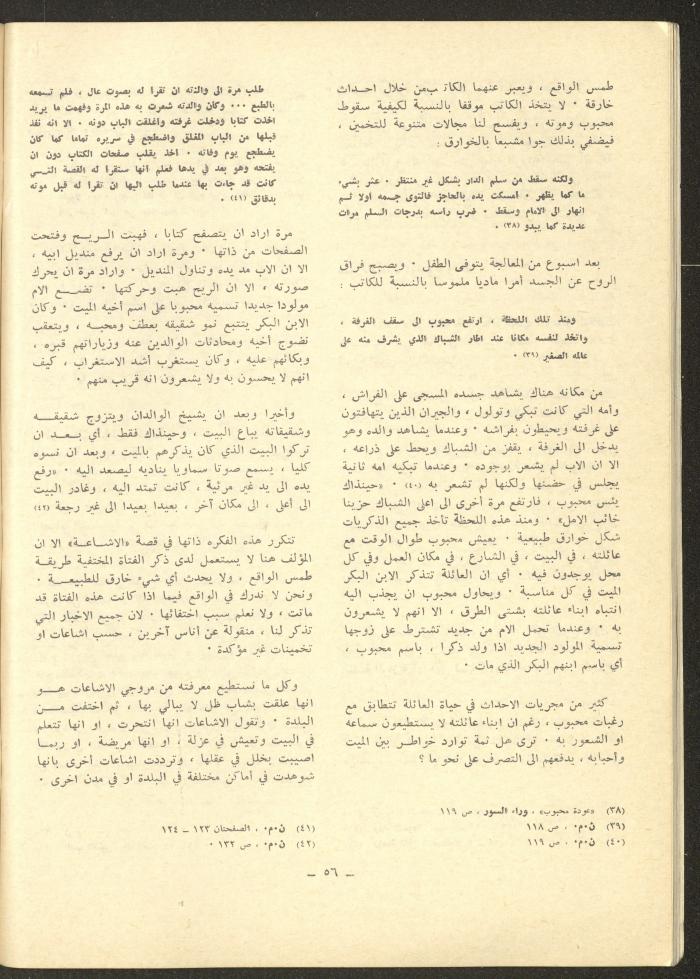 طمس الواقع ، ويعبر عنهما الكاتب من خلال احداث
خارقة ٠ لا يتخذ الكاتب موقفا بالنسبة لكيفية سقوط
محبوب وموته ، ويفسح لنا مجالات متنوعة للتخمين ،
فيضفي بذلك جوا مشبعا بالخوارق :
ولكنه سقط من سلم الدار بشكل غير منتظر ٠ عثر بشيء
ما كما يظهر ٠ امسكت يده بالحاجز فالتوى جسمه اولا ثم
انهار الى الامام وسقط ٠ ضرب رأسه بدرجات السلم مرات
عديدة كما يبدو (٣٨) ٠
بعد اسبوع من المعالجة يتوفى الطفل ٠ ويصبح فراق
الروح عن الجسد أمرا ماديا ملموسا بالنسبة للكاتب :
ومنذ تلك اللحظة ، ارتفع محبوب الى سقف الغرفة ،
واتخذ لنفسه مكانا عند اطار الشباك الذي يشرف منه على
عالمه الصغير (٣٩) ٠
من مكانه هناك يشاهد جسده المسجى على الفراش ،
وأمه التي كانت تبكي وتولول ، والجيران الذين يتهافتون
على غرفته ويحيطون بفراشه ٠ وعندما يشاهد والده وهو
يدخل الى الغرفة ، يقفز من الشباك ويحط على ذراعه ،
الا ان الاب لم يشعر بوجوده ٠ وعندما تبكيه امه ثانية
يجلس في حضنها ولكنها لم تشعر به (٤٠) ٠ «حينذاك
يئس محبوب ، فارتفع مرة أخرى الى اعلى الشباك حزينا
خائب الامل» ٠ ومنذ هذه اللحظة تأخذ جميع الذكريات
شكل خوارق طبيعية ٠ يعيش محبوب طوال الوقت مع
عائلته ، في البيت ، في الشارع ، في مكان العمل وفي كل
محل يوجدون فيه ٠ أي ان العائلة تتذكر الابن البكر
الميت في كل مناسبة ٠ ويحاول محبوب ان يجذب اليه
انتباه ابناء عائلته بشتى الطرق ، الا انهم لا يشعرون
به ٠ وعندما تحمل الام من جديد تشترط على زوجها
تسمية المولود الجديد اذا ولد ذكرا ، باسم محبوب ،
أي باسم ابنهم البكر الذي مات ٠
كثير من مجريات الاحداث في حياة العائلة تتطابق مع
رغبات محبوب ، رغم ان ابناء عائلته لا يستطيعون سماعه
او الشعور به ٠ ترى هل ثمة توارد خواطر بين الميت
وأحبابه ، يدفعهم الى التصرف على نحو ما ؟
(٣٨) «عودة محبوب» ، وراء السور ، ص ١١٩
(٣٩) ن٠م٠ ، ص ١١٨
(٤٠) ن٠م٠ ، ص ١١٩
طلب مرة الى والدته ان تقرا له بصوت عال ، فلم تسمعه
بالطبع ٠٠٠ وكان والدته شعرت به هذه المرة وفهمت ما يريد
اخذت كتابا ودخلت غرفته واغلقت الباب دونه ٠ الا انه نفذ
قبلها من الباب المغلق واضطجع في سريره تماما كما كان
يضطجع يوم وفاته ٠ اخذ يقلب صفحات الكتاب دون ان
يفتحه وهو بعد في يدها فعلم انها ستقرا له القصة التي
كانت قد جاءت بها عندما طلب اليها ان تقرا له قبل موته
بدقائق (٤١) ٠
مرة اراد ان يتصفح كتابا ، فهبت الريح وفتحت
الصفحات من ذاتها ٠ ومرة اراد ان يرفع منديل ابيه ،
الا ان الاب مد يده وتناول المنديل ٠ واراد مرة ان يحرك
صورته ، الا ان الريح هبت وحركتها ٠ تضع الام
مولودا جديدا تسميه محبوبا على اسم أخيه الميت ٠ وكان
الابن البكر يتتبع نمو شقيقه بعطف ومحبه ، ويتعقب
نضوج أخيه ومحادثات الوالدين عنه وزياراتهم قبره ،
وبكائهم عليه ، وكان يستغرب أشد الاستغراب ، كيف
انهم لا يحسون به ولا يشعرون انه قريب منهم ٠
وأخيرا وبعد ان يشيخ الوالدان ويتزوج شقيقه
وشقيقاته يباع البيت ، وحينذاك فقط ، أي بعد ان
تركوا البيت الذي كان يذكرهم بالميت ، وبعد ان نسوه
كليا ، يسمع صوتا سماويا يناديه ليصعد اليه ٠ «رفع
يده الى يد غير مرئية ، كانت تمتد اليه ، وغادر البيت
الى أعلى ، الى مكان آخر ، بعيدا بعيدا الى غير رجعة (٤٢)
تتكرر هذه الفكره ذاتها في قصة «الاشاعة» الا ان
المؤلف هنا لا يستعمل لدى ذكر الفتاة المختفية طريقة
طمس الواقع ، ولا يحدث أي شيء خارق للطبيعة ٠
ونحن لا ندرك في الواقع فيما اذا كانت هذه الفتاة قد
ماتت ، ولا نعلم سبب اختفائها ٠ لان جميع الاخبار التي
تذكر لنا ، منقولة عن أناس آخرين ، حسب اشاعات او
تخمينات غير مؤكدة ٠
وكل ما نستطيع معرفته من مروجي الاشاعات هو
انها علقت بشاب ظل لا يبالي بها ، ثم اختفت من
البلدة ٠ وتقول الاشاعات انها انتحرت ، او انها تتعلم
في البيت وتعيش في عزلة ، او انها مريضة ، او ربما
اصيبت بخلل في عقلها ، وترددت اشاعات أخرى بانها
شوهدت في أماكن مختلفة في البلدة او في مدن اخرى ٠
(٤١) ن٠م٠ ، الصفحتان ١٢٣ – ١٢٤
(٤٢) ن٠م٠ ، ص ١٣٢ ٠
– ٥٦ –